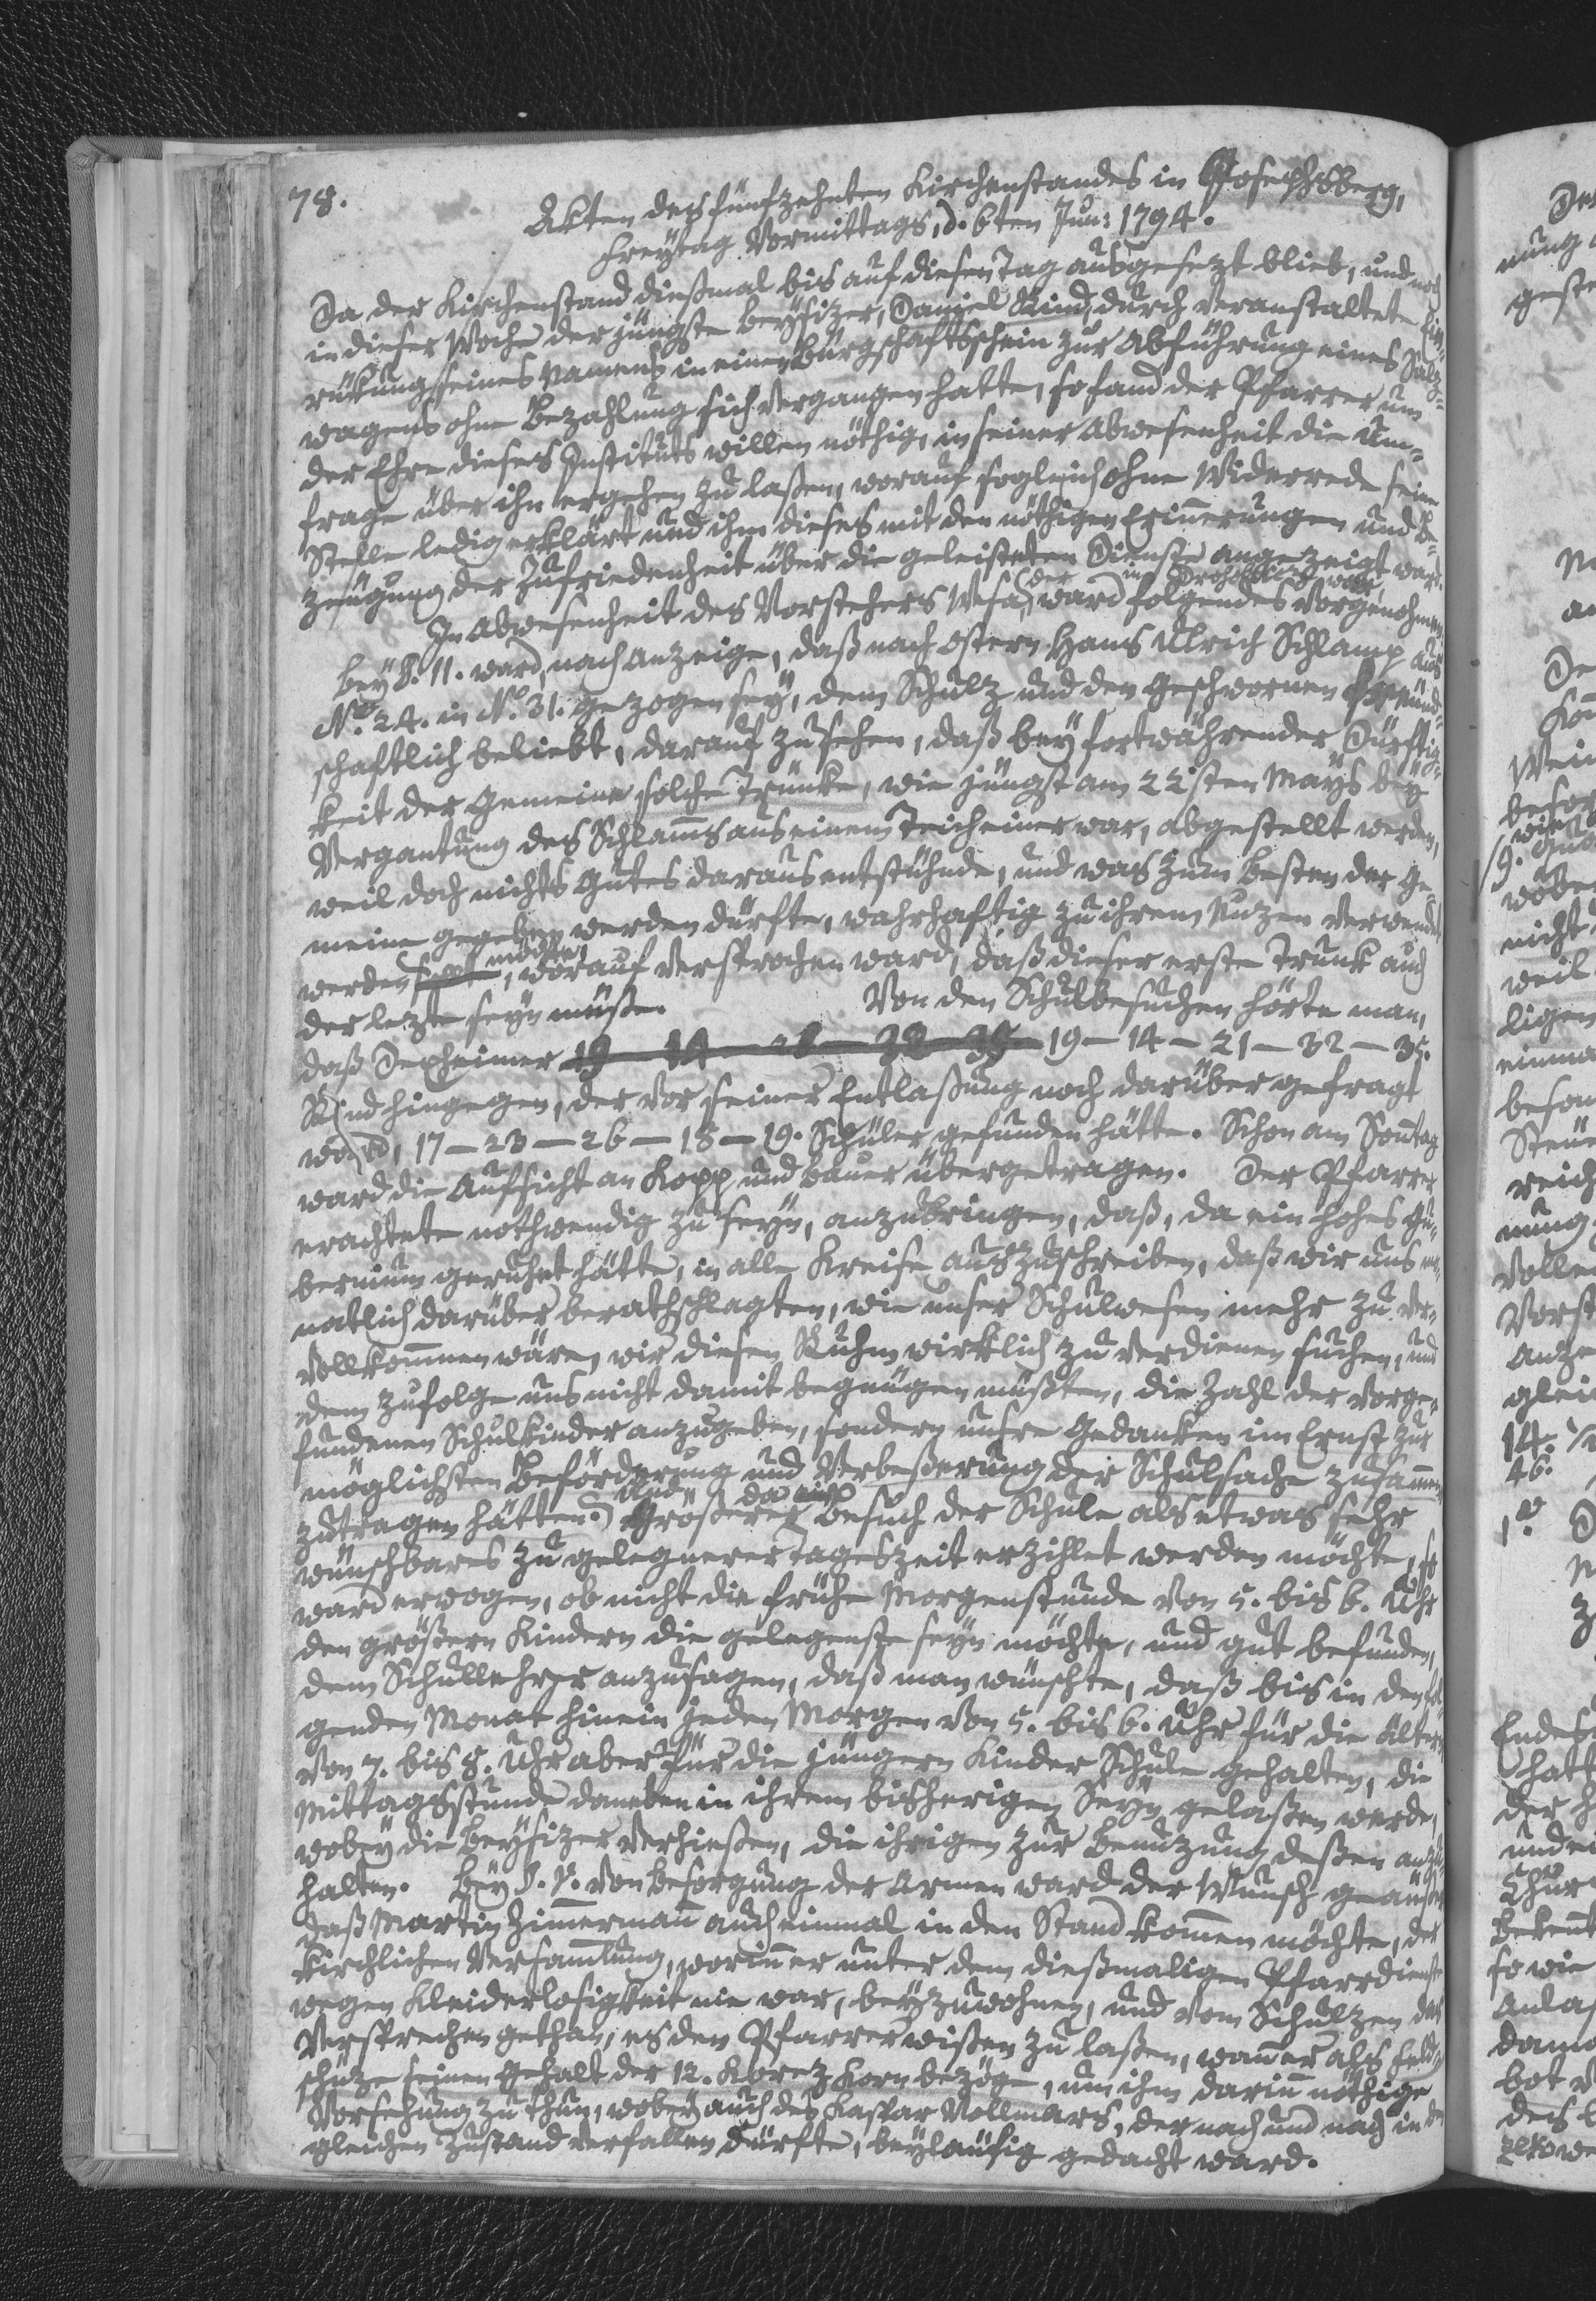 78.
Akten des fünfzehnten Kirchenstandes in Josephsberg,
Freytag Vormittags, d. 6ten Jun: 1794.
Da der Kirchenstand dießmal bis auf diesen Tag ausgesezt blieb, und noch
in dieser Woche der jüngste Beysizer, Daniel Kind, durch veranstaltete Ein-
rükung seines Namens in einen Bürgschaftsschein zur Abführung eines Salz-
wagens ohne Bezahlung sich vergangen hatte, so fand der Pfarrer um
der Ehre dieses Instituts willen nöthig, in seiner Abwesenheit die Um-
frage über ihn ergehen zu laßen, worauf sogleich ohne Widerrede seine
Stelle ledig erklärt und ihm dieses mit den nöthigen Erinnerungen und Be-
zeugung der Zufriedenheit über die geleisteten Dienste angezeigt ward.
In Abwesenheit des Vorstehers der in Drohobycz war, ward folgendes vorgenohmen.
Bey §. 11. ward, nach Anzeige, daß nach Ostern Hans Ulrich Schlamp aus
No 24. in N. 31. gezogen sey, dem Schulz und den Geschwornen freund-
schaftlich beliebt, darauf zu sehen, daß bey fortwährender Dürftig-
keit der Gemeine solche Trünke, wie jüngst am 22sten Mays bey
Vergantung des Schlamms aus einem Teich einer war, abgestellt werden,
weil doch nichts Gutes daraus entstühnde, und was zum Besten der Ge-
meine gegeben werden dürfte, wahrhaftig zu ihrem Nuzen verwendet
werden möchte, worauf versprochen ward, daß dieser erste Trunk auch
der lezte seyn müße. Von den Schulbesuchen hörte man,
daß Dexheimer 19 – 14 – 21 – 32 – 35.
Kind hingegen, der vor seiner Entlaßung noch darüber gefragt
ward, 17 – 23 – 26 – 18 – 19. Schüler gefunden hätte. Schon am Sonntag
ward die Aufsicht an Kopp und Bauer übergetragen. Der Pfarrer
erachtete nothwendig zu seyn, anzubringen, daß, da ein hohes Gu-
bernium geruhet hätte, in alle Kreise auszuschreiben, daß wir uns mo-
natlich darüber berathschlagten, wie unser Schulwesen mehr zu ver-
vollkommen wäre, wir diesen Ruhm wirklich zu verdienen suchen, und
dem zufolge uns nicht damit begnügen müßten, die Zahl der vorge-
fundenen Schulkinder anzugeben, sondern unsre Gedanken im Ernst zur
möglichsten Beförderung und Verbeßerung der Schulsache zusammen
zutragen hätten. Und da ein größerer Besuch der Schule als etwas sehr
wünschbares zu gelegnerer Tageszeit erzihlet werden möchte, so
ward erwogen, ob nicht die frühe Morgenstunde von 5. bis 6. Uhr
den größern Kindern die gelegenste seyn möchte, und gut befunden,
dem Schullehrer anzusagen, daß man wünschte, daß bis in den fol-
genden Monat hinein jeden Morgen von 5. bis 6. Uhr für die ältern
von 7. bis 8. Uhr aber für die jüngern Kinder Schule gehalten, die
Mittagsstunde daneben in ihrem bisherigen Seyn gelaßen werde,
wobey die Beysizer verhießen, die ihrigen zur Benuzung deßen anzu-
halten. Bey §. 7. von Besorgung der Armen ward der Wunsch geäußert
daß Martin Zimmermann auch einmal in den Stand kommen möchte, der
kirchlichen Versammlung, worinn er unter dem dießmaligen Pfarrdienst
wegen Kleiderlosigkeit nie war, beyzuwohnen, und vom Schulzen das
Versprechen gethan, es den Pfarrer wißen zu laßen, wann er als Feld-
schüze seinen Gehalt der 12. Korez Korn bezöge, um ihm darinn nöthige
Vorsehung zu thun, wobey auch des Kaspar Vollmars, der nach und nach in den
gleichen Zustand verfallen dürfte, beyläufig gedacht ward.